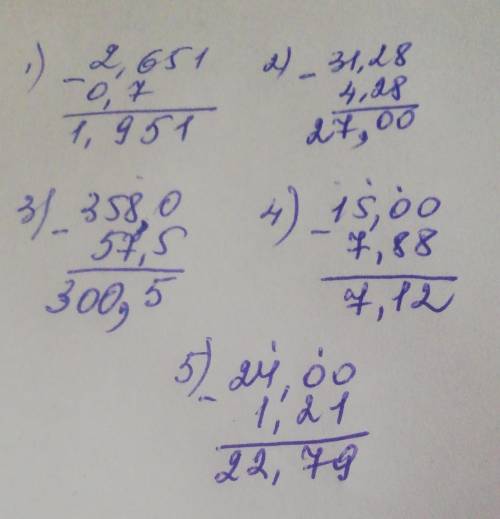 1) - 2,651
0,7
1,951
2) - 31,28
4,28
27,00
3) - 358,0
57,5
300,5
4) - 15,00
7,88
7,12
5) - 24,00
1,21
22,79